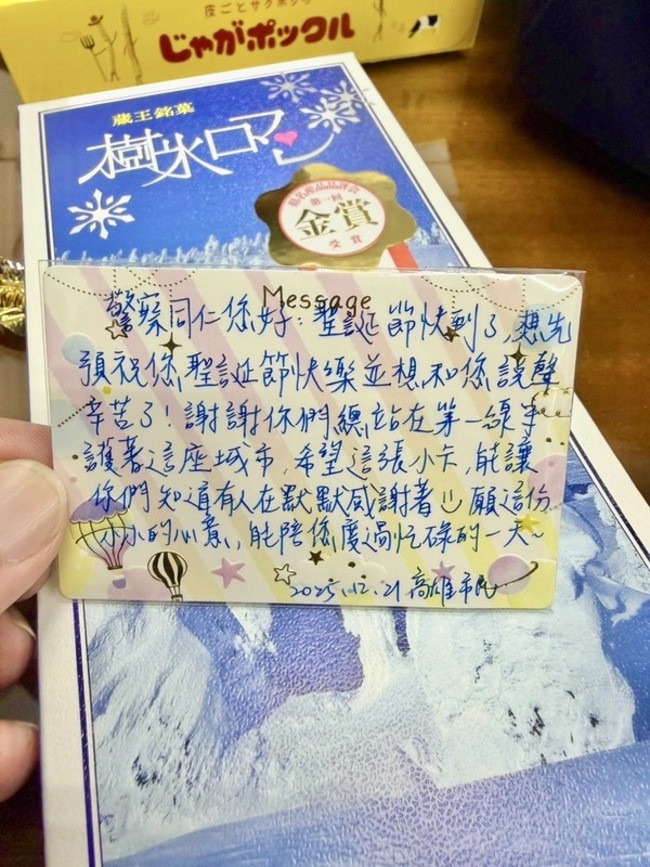 皮ごとサクポック
じゃがポックル
蔵王銘菓
樹氷ロマン
県名産品品評会
第一回
金賞
受賞
Message
警察同仁您好：聖誕節快到了，想先
預祝您聖誕節快樂並想和您說聲
辛苦了！謝謝你們總站在第一線守
護著這座城市，希望這張小卡，能讓
你們知道有人在默默感謝著☺願這份
小小的心意，能陪您度過忙碌的一天~
2025.12.21 高雄市民